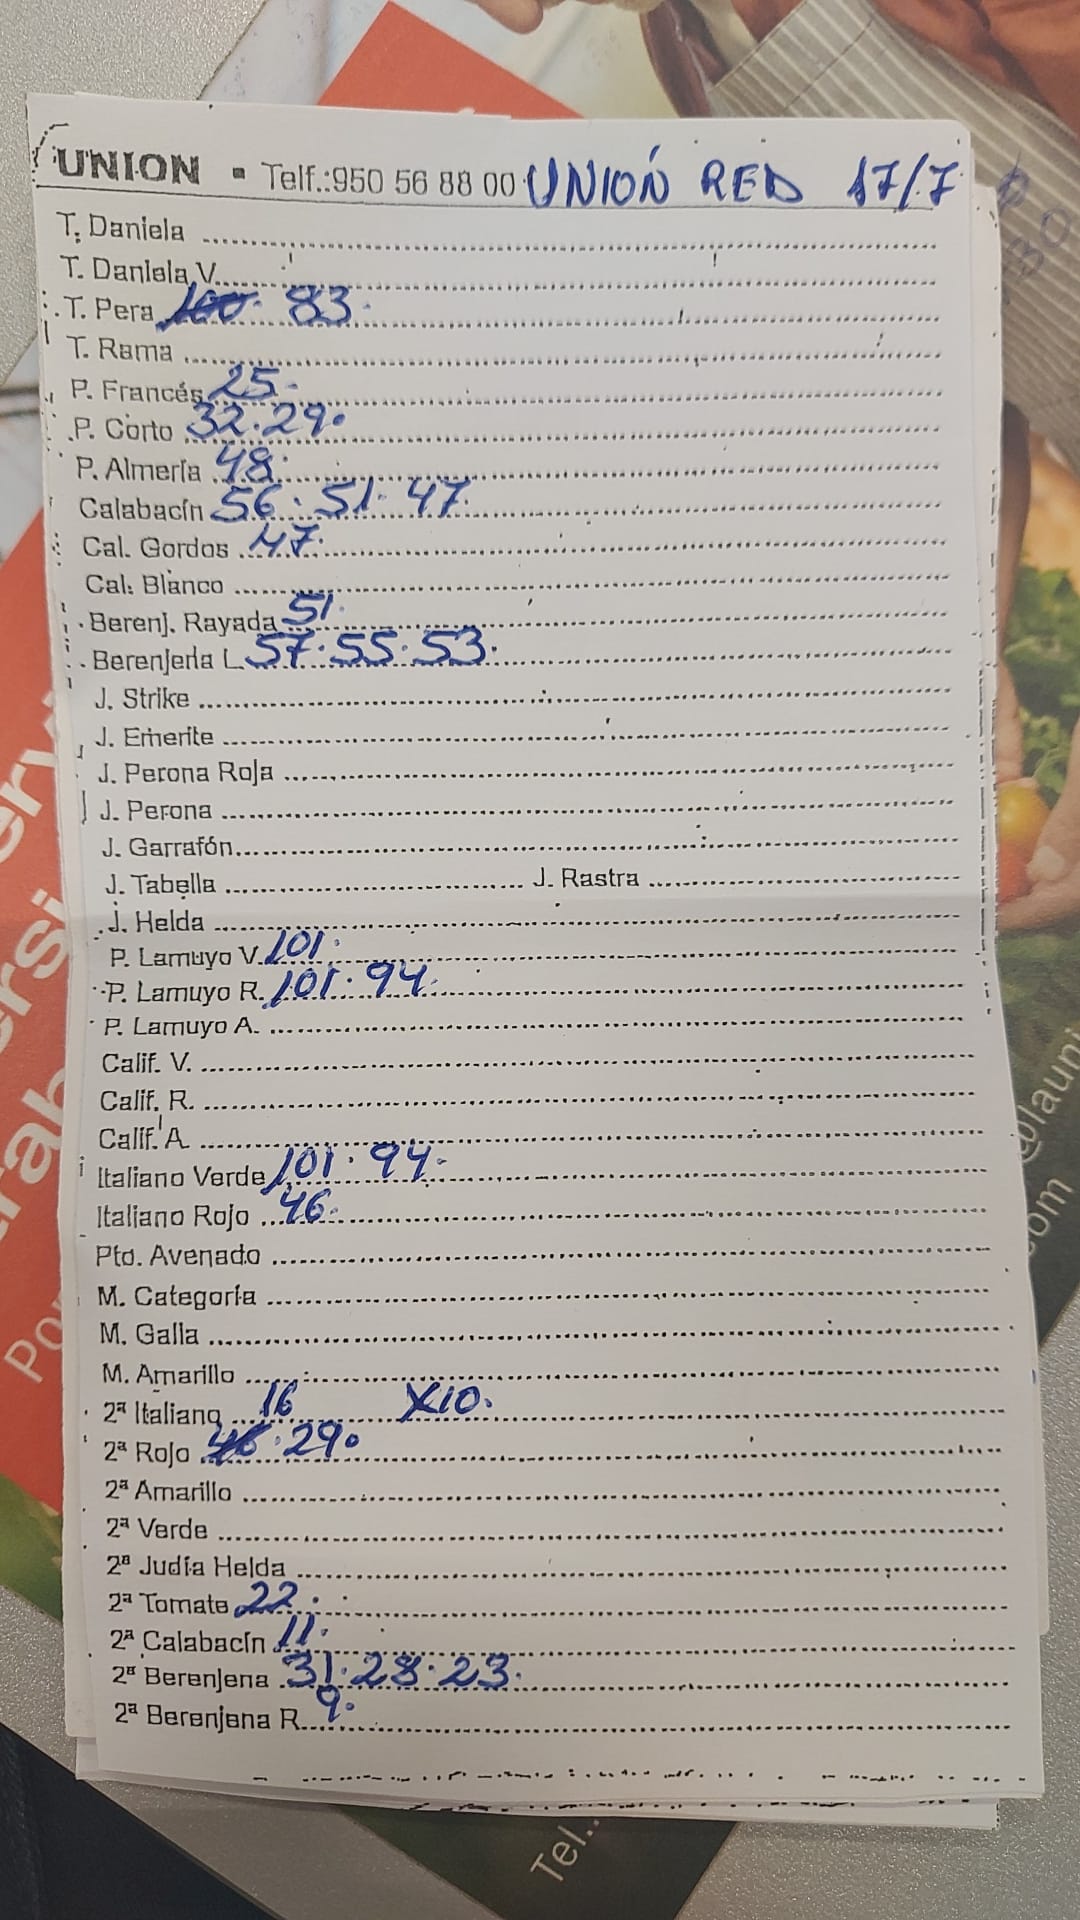 UNION - Telf.:950 56 88 00 UNIÓN RED 17/7
T. Daniela
T. Daniela V.
T. Pera 100. 83.
T. Rama
P. Francés 25.
P. Corto 32.29.
P. Almería 48.
Calabacín 56.51.47.
Cal. Gordos 47.
Cal. Blanco
Berenj. Rayada 51.
Berenjena L. 57.55.53.
J. Strike
J. Emerite
J. Perona Roja
J. Perona
J. Garrafón
J. Tabella J. Rastra
J. Helda
P. Lamuyo V. 101.
P. Lamuyo R. 101.94.
P. Lamuyo A.
Calif. V.
Calif. R.
Calif. A
Italiano Verde 101.94.
Italiano Rojo 46.
Pto. Avenado
M. Categoría
M. Galla
M. Amarillo
2ª Italiano 16 X10.
2ª Rojo 46.29.
2ª Amarillo
2ª Verde
2ª Judía Helda
2ª Tomate 22.
2ª Calabacín 11.
2ª Berenjena 31.28.23.
2ª Berenjena R. 9.
@launi
om
Tel..